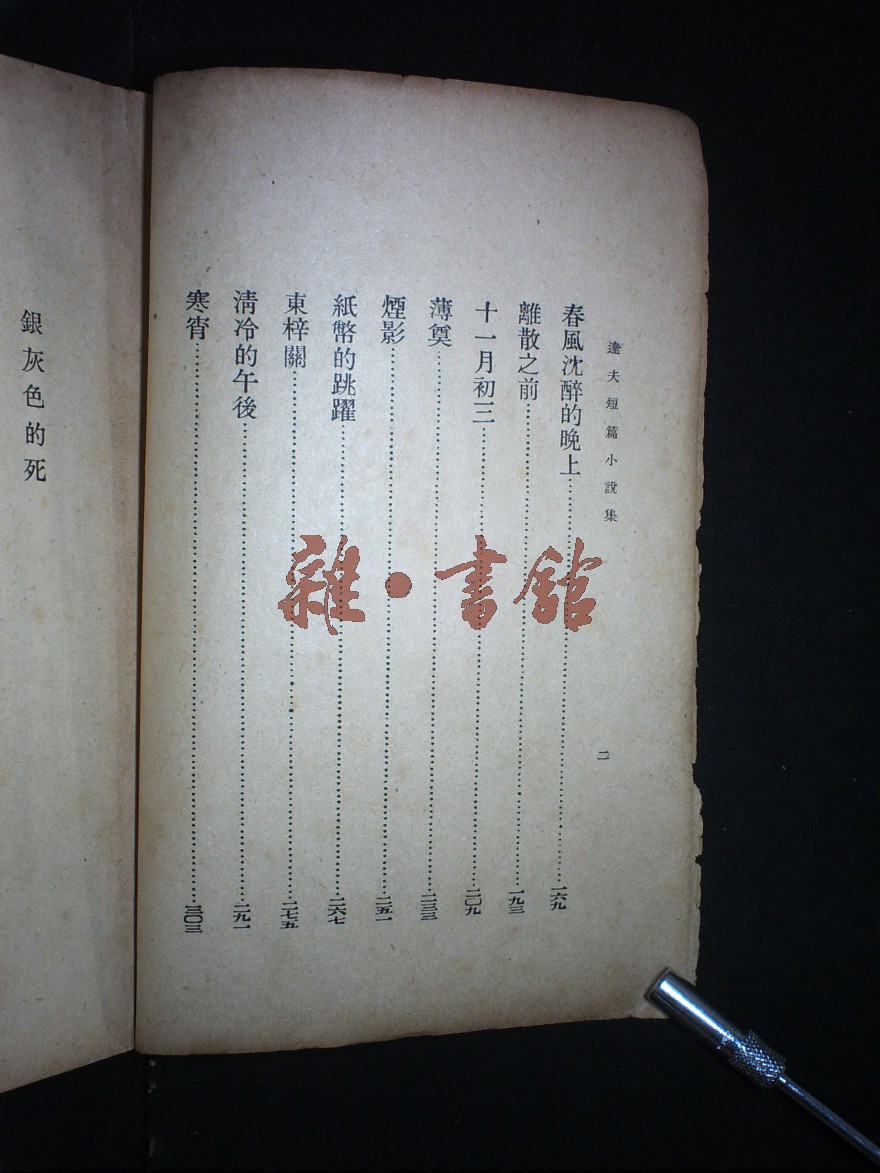 達夫短篇小說集
二
春風沈醉的晚上…………一六九
離散之前…………一九三
十一月初三…………二〇九
薄奠…………二三三
煙影…………二五一
紙幣的跳躍…………二六七
東梓關…………二七五
清冷的午後…………二九一
寒宵…………三〇三
銀灰色的死
雜·書館